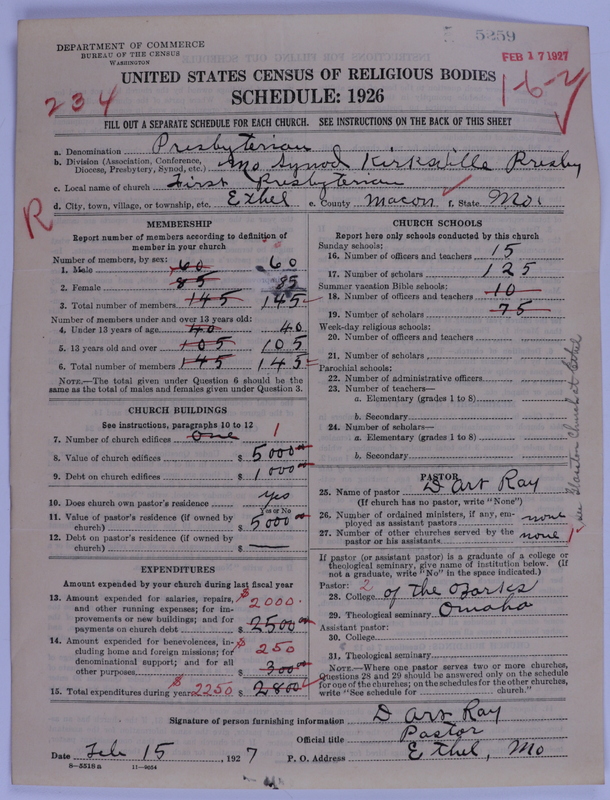 5259
DEPARTMENT OF COMMERCE
BUREAU OF THE CENSUS
WASHINGTON
FEB 17 1927
UNITED STATES CENSUS OF RELIGIOUS BODIES
1-6-
234
SCHEDULE: 1926
FILL OUT A SEPARATE SCHEDULE FOR EACH CHURCH. SEE INSTRUCTIONS ON THE BACK OF THIS SHEET
a. Denomination Presbyterian
b. Division (Association, Conference, Diocese, Presbytery, Synod, etc.) Mo Synod Kirksville Presby
c. Local name of church First Presbyterian
d. City, town, village, or township, etc. Ethel e. County Macon f. State Mo.
R
MEMBERSHIP
Report number of members according to definition of
member in your church
Number of members, by sex:
1. Male 60 60
2. Female 85 85
3. Total number of members 145 145
Number of members under and over 13 years old:
4. Under 13 years of age 40 40
5. 13 years old and over 105 105
6. Total number of members 145 145
NOTE.—The total given under Question 6 should be
same as the total of males and females given under Question 3.
CHURCH BUILDINGS
See instructions, paragraphs 10 to 12
7. Number of church edifices one 1
8. Value of church edifices $ 5000.00
9. Debt on church edifices $ 1000.00
10. Does church own pastor's residence yes
Yes or No
11. Value of pastor's residence (if owned by
church) $ 5000.00
12. Debt on pastor's residence (if owned by
church) $ —
EXPENDITURES
Amount expended by your church during last fiscal year
13. Amount expended for salaries, repairs, $ 2000.
and other running expenses; for im-
provements or new buildings; and for
payments on church debt $ 2500.00
14. Amount expended for benevolences, in- $ 250
cluding home and foreign missions; for
denominational support; and for all
other purposes $ 300.00
15. Total expenditures during year $ 2250 $ 2800
CHURCH SCHOOLS
Report here only schools conducted by this church
Sunday schools:
16. Number of officers and teachers 15
17. Number of scholars 125
Summer vacation Bible schools:
18. Number of officers and teachers 10
19. Number of scholars 75
Week-day religious schools:
20. Number of officers and teachers
21. Number of scholars
Parochial schools:
22. Number of administrative officers
23. Number of teachers—
a. Elementary (grades 1 to 8)
b. Secondary
24. Number of scholars—
a. Elementary (grades 1 to 8)
b. Secondary
PASTOR
25. Name of pastor D Art Ray
(If church has no pastor, write "None")
26. Number of ordained ministers, if any, em-
ployed as assistant pastors none
27. Number of other churches served by the
pastor or his assistants none 1
If pastor (or assistant pastor) is a graduate of a college or
theological seminary, give name of institution below. (If
not a graduate, write "No" in the space indicated.)
Pastor: 2
28. College of the Ozarks
29. Theological seminary Omaha
Assistant pastor:
30. College
31. Theological seminary
NOTE.—Where one pastor serves two or more churches,
Questions 28 and 29 should be answered only on the schedule
for one of the churches; on the schedules for the other churches,
write "See schedule for church."
see Church at Ethel
Signature of person furnishing information D Art Ray
Official title Pastor
Date Feb 15, 1927 P. O. Address Ethel, Mo
8—5518a 11—9054